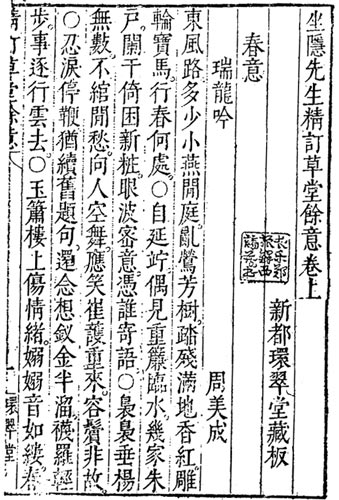 坐隱先生精訂草堂餘意卷上
新都環翠堂藏板
長樂鄭振鐸西諦藏書
春意
瑞龍吟　周美成
東風路多少小燕閒庭亂鶯芳樹踏殘滿地香紅雕
輪寶馬行春何處○自延竚偶見重簾臨水幾家朱
戶闌干倚困新粧眼波密意憑誰寄語○裊裊垂楊
無數不綰閒愁向人空舞應笑崔護重來容鬢非故
○忍淚停鞭猶續舊題句還念想釵金半溜襪羅輕
步事逐行雲去○玉簫樓上傷情緒嫋嫋音如縷春
精訂草堂餘意　環翠堂